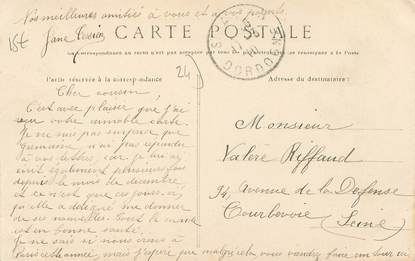 Nos meilleures amitiés à vous et à vos parents.
15t
Jane
CARTE POSTALE
La correspondance au recto n'est pas acceptée par tous les pays étrangers, se renseigner à la Poste
DORDOGNE
24
Partie réservée à la correspondance
Adresse du destinataire :
Cher cousin,
C'est avec plaisir que j'ai
reçu votre aimable carte.
Je ne suis pas surprise que
Germaine n'ai pas répondu
à vos lettres, car je lui ai
écrit également plusieurs fois
depuis le mois de décembre
et ce n'est que ces jours-ci
qu'elle a daigné me donner
de ses nouvelles. Tout le monde
est en bonne santé.
Je ne sais si nous irons à
Paris cette année, mais j'espère que malgré cela vous viendrez faire un tour au
Monsieur
Valère Riffaud
94 Avenue de la Défense
Courbevoie
(Seine)